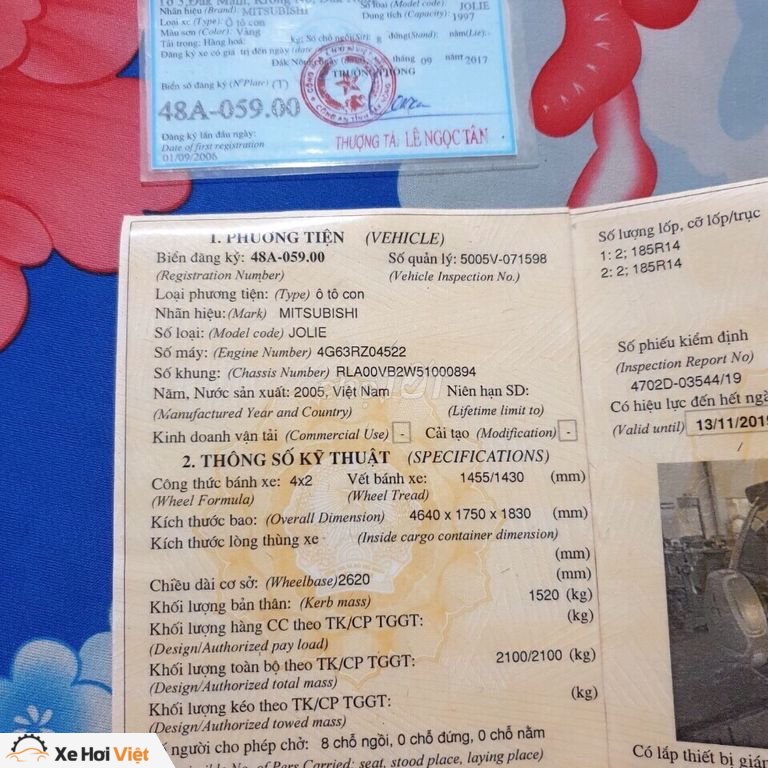 Tổ 3, Đăk Mâm, Krông Nô, Đăk
Nhãn hiệu (Brand) MITSUBISHI
Số loại (Model code) JOLIE
Loại xe (Type): Ô tô con
Dung tích (Capacity): 1997
Màu sơn (Color): Vàng
Tải trọng: Hàng hoá: kg; Số chỗ ngồi(Sit): 8 đứng(Stand): nằm(Lie):
Đăng ký xe có giá trị đến ngày (date
Đăk Nông, ngày tháng 09 năm 2017
TRƯỞNG PHÒNG
Biển số đăng ký (N°Plate) (T)
48A-059.00
Đăng ký lần đầu ngày:
Date of first registration
01/09/2006
THƯỢNG TÁ: LÊ NGỌC TÂN
1. PHƯƠNG TIỆN (VEHICLE)
Biển đăng ký: 48A-059.00 Số quản lý: 5005V-071598
(Registration Number) (Vehicle Inspection No.)
Loại phương tiện: (Type) ô tô con
Nhãn hiệu: (Mark) MITSUBISHI
Số loại: (Model code) JOLIE
Số máy: (Engine Number) 4G63RZ04522
Số khung: (Chassis Number) RLA00VB2W51000894
Năm, Nước sản xuất: 2005, Việt Nam Niên hạn SD:
(Manufactured Year and Country) (Lifetime limit to)
Kinh doanh vận tải (Commercial Use) - Cải tạo (Modification) -
2. THÔNG SỐ KỸ THUẬT (SPECIFICATIONS)
Công thức bánh xe: 4x2 Vết bánh xe: 1455/1430 (mm)
(Wheel Formula) (Wheel Tread)
Kích thước bao: (Overall Dimension) 4640 x 1750 x 1830 (mm)
Kích thước lòng thùng xe (Inside cargo container dimension)
(mm)
Chiều dài cơ sở: (Wheelbase)2620 (mm)
Khối lượng bản thân: (Kerb mass) 1520 (kg)
Khối lượng hàng CC theo TK/CP TGGT: (kg)
(Design/Authorized pay load)
Khối lượng toàn bộ theo TK/CP TGGT: 2100/2100 (kg)
(Design/Authorized total mass)
Khối lượng kéo theo TK/CP TGGT: (kg)
(Design/Authorized towed mass)
người cho phép chở: 8 chỗ ngồi, 0 chỗ đứng, 0 chỗ nằm
No. of Pers Carried: seat, stood place, laying place)
Số lượng lốp, cỡ lốp/trục
1: 2; 185R14
2: 2; 185R14
Số phiếu kiểm định
(Inspection Report No)
4702D-03544/19
Có hiệu lực đến hết ngà
(Valid until) 13/11/2019
Có lắp thiết bị giám
Xe Hơi Việt